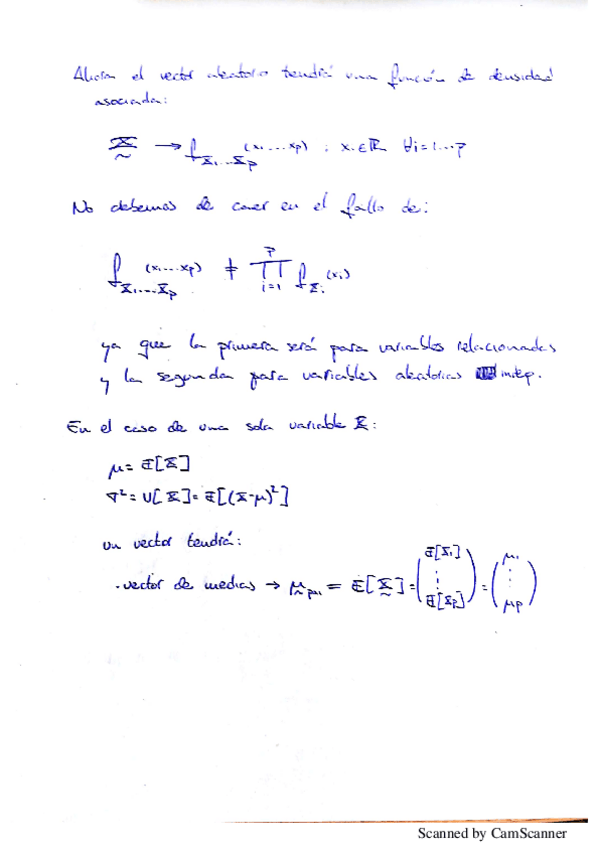 Ahora el vector aleatorio tendrá una función de densidad
asociada:
X̰ → f_{X₁...Xₚ}(x₁...xₚ) ; xᵢ∈ℝ ∀i=1...p
No debemos de caer en el fallo de:
f_{X₁...Xₚ}(x₁...xₚ) ≠ ∏_{i=1}^{p} f_{Xᵢ}(xᵢ)
ya que la primera será para variables relacionadas
y la segunda para variables aleatorias indep.
En el caso de una sola variable X:
μ = E[X]
σ² = V[X] = E[(X-μ)²]
un vector tendrá:
· vector de medias → μ̰ₚₓ₁ = E[X̰] = (E[X₁] ⋮ E[Xₚ]) = (μ₁ ⋮ μₚ)
Scanned by CamScanner